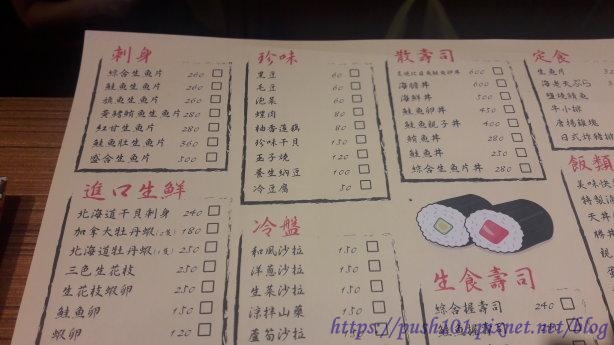 刺身
綜合生魚片 260
鮭魚生魚片 260
旗魚生魚片 260
黃鰭鮪魚生魚片 280
紅甘生魚片 280
鮭魚肚生魚片 360
盛合生魚片 500
進口生鮮
北海道干貝刺身 240
加拿大牡丹蝦(2隻) 180
北海道牡丹蝦(2隻) 250
三色生花枝 250
生花枝蝦卵 250
鮭魚卵 150
蝦卵 120
珍味
黑豆 60
毛豆 60
泡菜 60
螺肉 80
柚香蓮藕 80
珍味干貝 150
玉子燒 120
養生納豆 100
冷豆腐 50
冷盤
和風沙拉 150
洋蔥沙拉 150
生菜沙拉 150
涼拌山藥 150
蘆筍沙拉 150
散壽司
600
海膽丼 600
海鮮丼 500
鮭魚卵丼 450
鮭魚親子丼 400
鮪魚丼 280
鮭魚丼 250
綜合生魚片丼 280
生食壽司
綜合握壽司 240
定食
生魚片
鹽燒鯖魚
牛小排
唐揚雞塊
日式炸豬排
飯類
美味
特製
https://push101.pixnet.net/blog